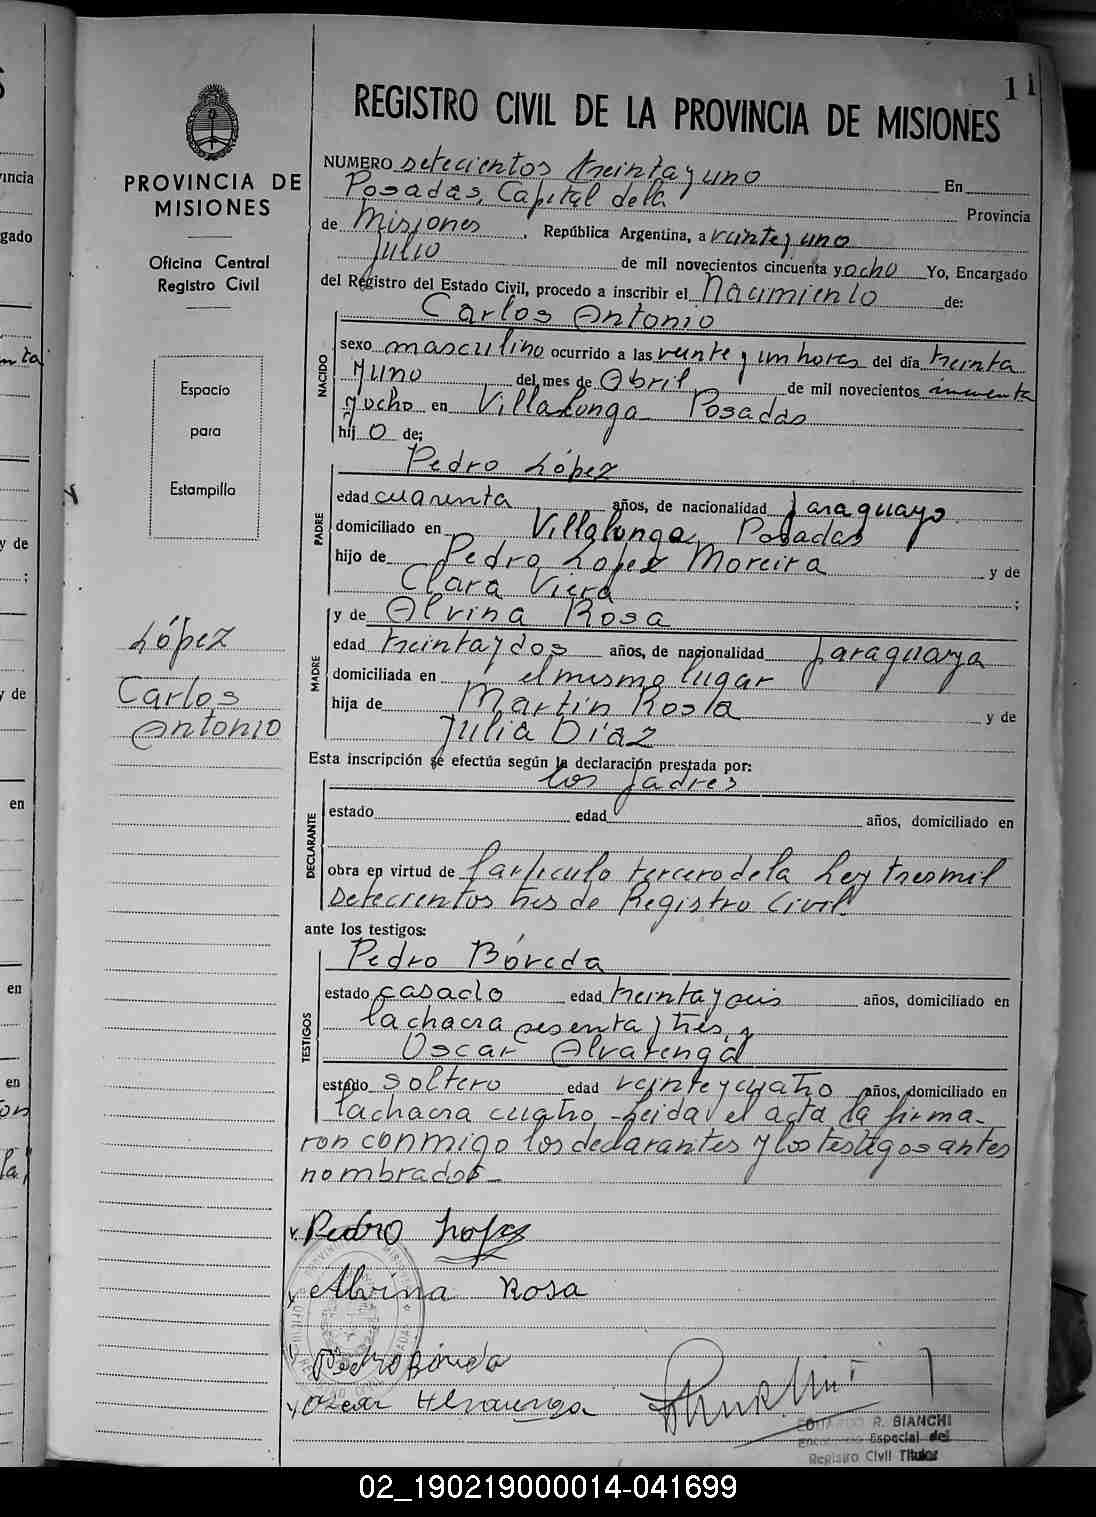 11
REGISTRO CIVIL DE LA PROVINCIA DE MISIONES
PROVINCIA DE
MISIONES
Oficina Central
Registro Civil
Espacio
para
Estampilla
López
Carlos
Antonio
NUMERO setecientos treinta y uno En
Posadas, Capital de la Provincia
de Misiones, República Argentina, a veinte y uno
Julio de mil novecientos cincuenta y ocho Yo, Encargado
del Registro del Estado Civil, procedo a inscribir el Nacimiento de:
NACIDO
Carlos Antonio
sexo masculino ocurrido a las veinte y un hores del día treinta
y uno del mes de Abril de mil novecientos cincuenta
y ocho en Villalonga Posadas
hij o de;
PADRE
Pedro López
edad cuarenta años, de nacionalidad paraguayo
domiciliado en Villalonga, Posadas
hijo de Pedro Lopez Moreira y de
Clara Viera ;
MADRE
y de Alvina Rosa
edad treinta y dos años, de nacionalidad paraguaya
domiciliada en el mismo lugar
hija de Martín Rosla y de
Julia Díaz
Esta inscripción se efectúa según la declaración prestada por:
los padres
DECLARANTE
estado edad años, domiciliado en
obra en virtud de l'artículo tercero de la Ley tres mil
setecientos tres de Registro Civil.
ante los testigos:
TESTIGOS
Pedro Bóveda
estado casado edad treinta y seis años, domiciliado en
la chacra sesenta y tres y
Oscar Alvarenga
estado soltero edad veinte y cuatro años, domiciliado en
la chacra cuatro - Leida el acta la firma-
ron conmigo los declarantes y los testigos antes
nombrados -
Pedro Lopez
Alvina Rosa
Pedro Bóveda
Oscar Alvarenga
EDUARDO R. BIANCHI
Encargado Especial del
Registro Civil Titular
02_190219000014-041699